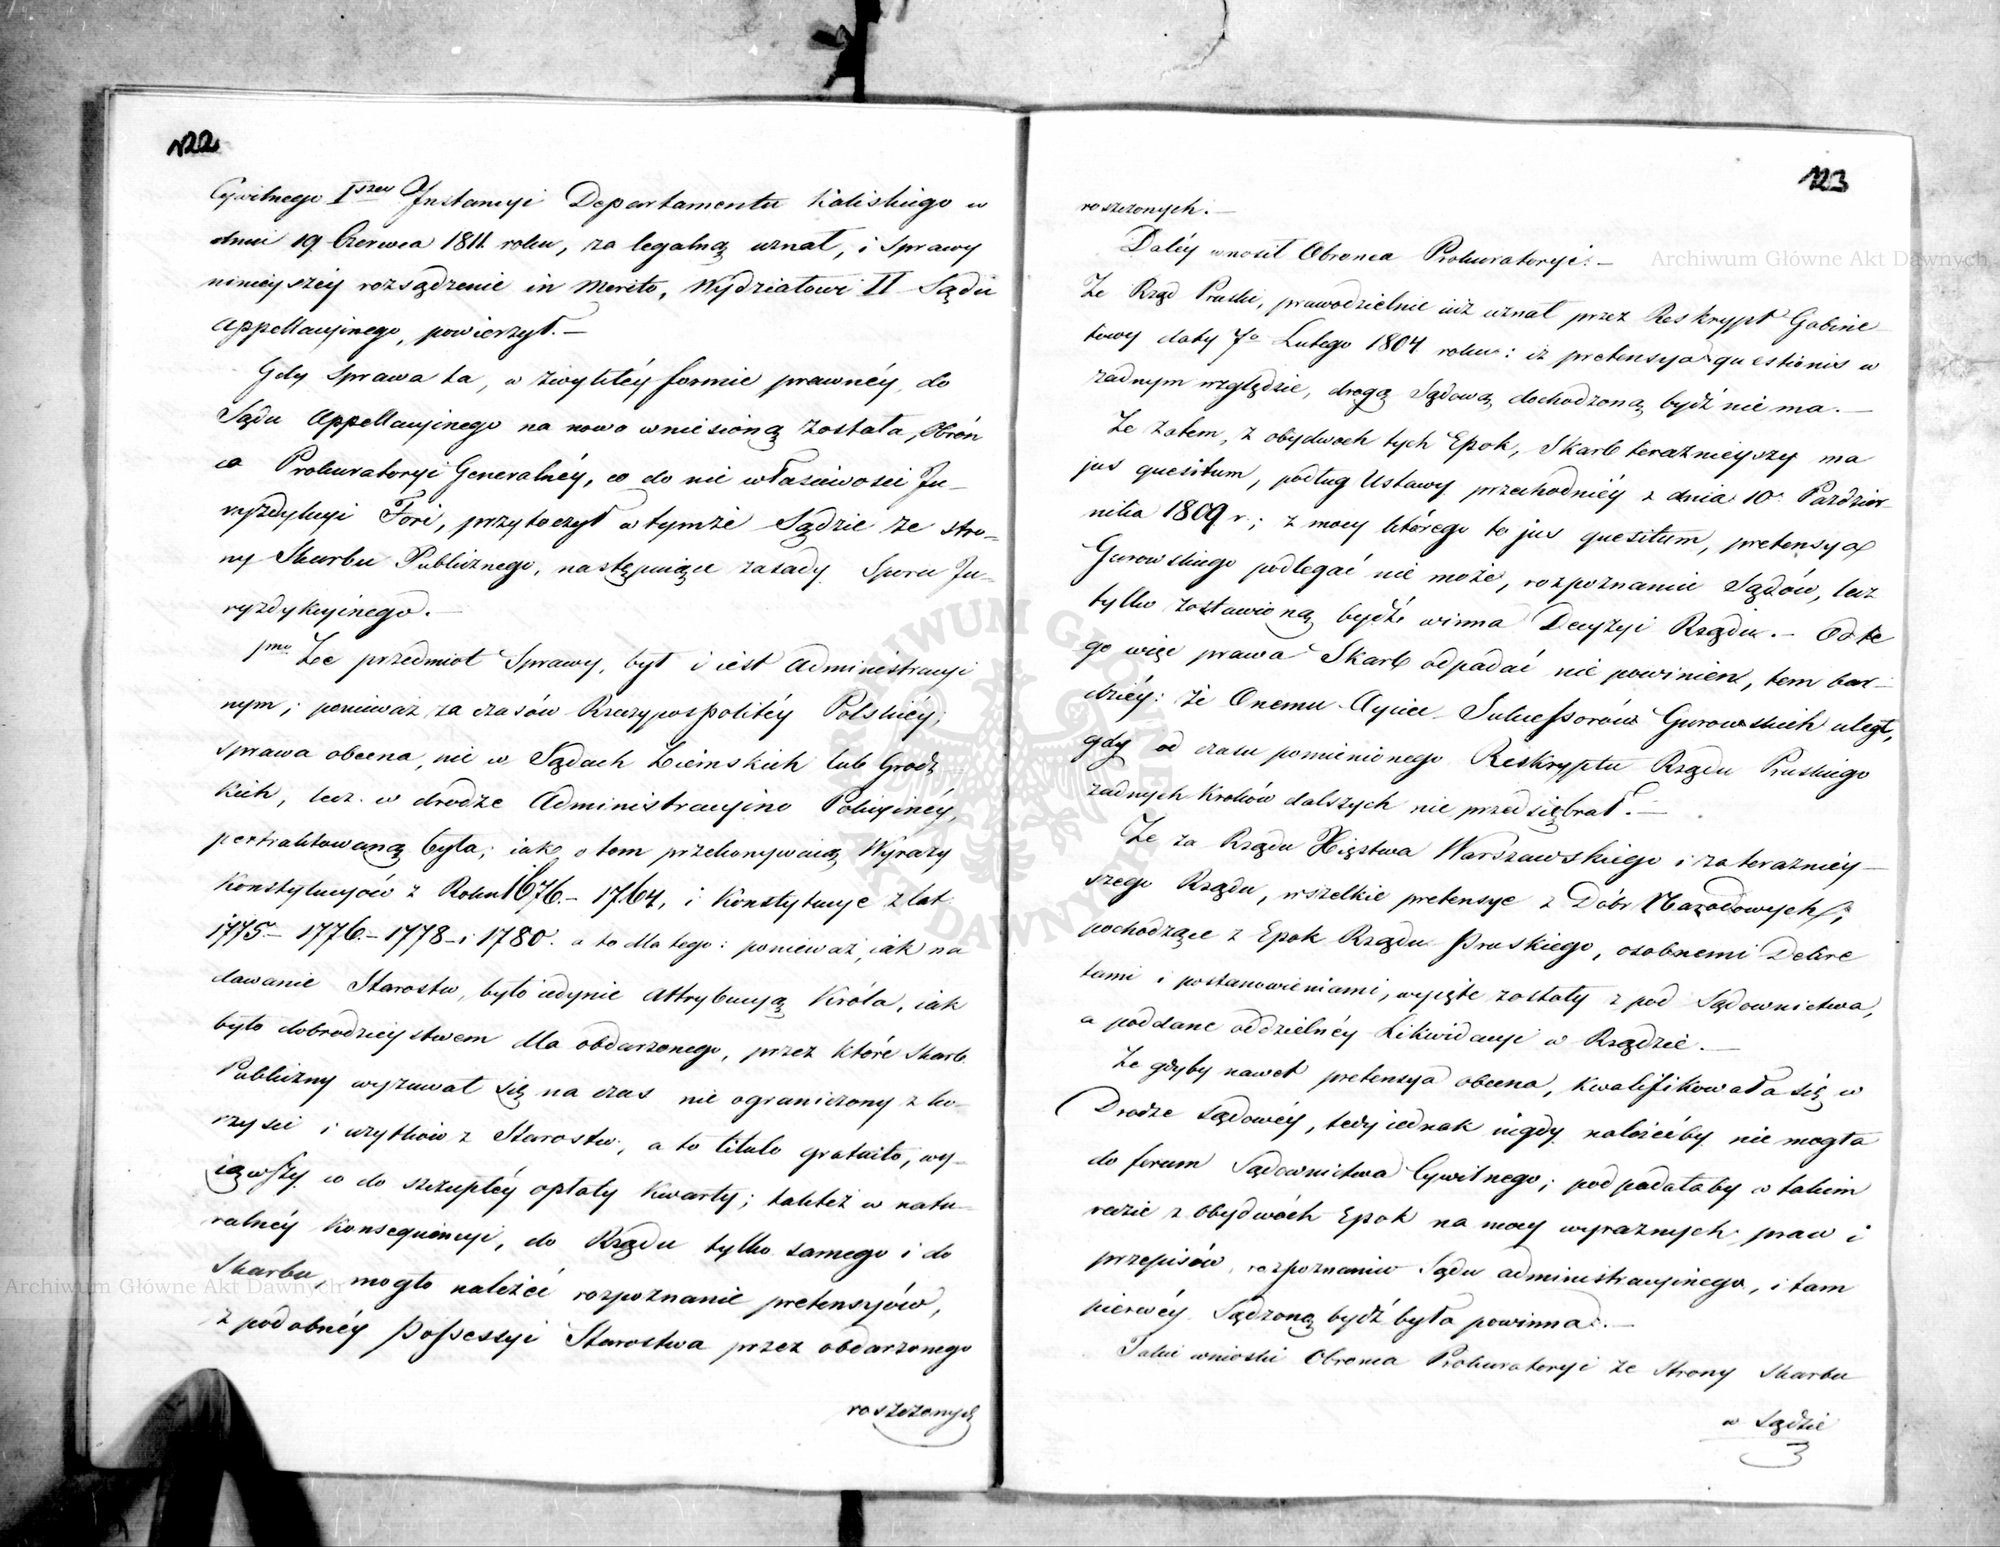 122
Cywilnego I<sup>szey</sup> Instancyi Departamentu Kaliskiego w
dniu 19 Czerwca 1811 roku, za legalną uznał, i Sprawy
ninieyszéy rozsądzenie in Merito, Wydziałowi II Sądu
Appellacyinego, powierzył. —
Gdy Sprawa ta, w zwykłéy formie prawnéy, do
Sądu Appellacyinego na nowo wniesioną została, Obroń
ca Prokuratoryi Generalnéy, co do nie właściwości Ju-
ryzdykcyi Fori, przytoczył w tymże Sądzie ze stro-
ny Skarbu Publicznego, następuiące zasady Sporu Ju-
ryzdykcyinego. —
pmo Że przedmiot Sprawy, był i iest Administracyi
nym; ponieważ za czasów Rzeczypospolitéy Polskiéy;
sprawa obecna, nie w Sądach Ziemskich lub Grodz
kich, lecz w drodze Administracyino Policyinéy,
pertraktowaną była; iak o tem przekonywaią Wyrazy
Konstytucyów z Roku 1676. – 1764, i Konstytucye z lat
1775 – 1776. – 1778 – i 1780. a to dla tego: ponieważ, iak na
dawanie Starostw, było iedynie Attrybucyą Króla, iak
było dobrodzieystwem dla obdarzonego, przez które Skarb
Publiczny wyzuwał się na czas nie ograniczony z ko-
rzyści i użytków z Starostw, a to titulo gratuito, wy-
iąwszy co do szczupłéy opłaty Kwarty; takteż w natu-
ralnéy Konsequencyi, do Rządu tylko samego i do
Skarbu, mogło należéć rozpoznanie pretensyów,
z podobnéy Possessyi Starostwa przez obdarzonego
roszczonych
123
roszczonych. —
Daléy wnosił Obronca Prokuratoryi: —
Że Rząd Pruski, prawodzielnie iuż uznał przez Reskrypt Gabine
towy daty 7<sup>o</sup> Lutego 1804 roku: iż pretensya questionis w
żadnym względzie, drogą Sądową, dochodzoną bydź nie ma. —
Że zatem, z obydwoch tych Epok, Skarb teraznieyszy ma
jus quesitum, podług Ustawy przechodniéy z dnia 10. Pazdzier-
nika 1809 r.; z mocy którego to jus quesitum, pretensya
Gurowskiego podlegać nie może, rozpoznaniu Sądów, lecz
tylko zostawioną bydź winna Decyzyi Rządu. — Od te
go więc prawa Skarb odpadać nie powinien, tem bar-
dziéy: że Onemu Oyciec Sukcessorów Gurowskich uległ,
gdy od czasu pomienionego Reskryptu Rządu Pruskiego
żadnych Kroków dalszych nie przedsiębrał. —
Że za Rządu Xięstwa Warszawskiego i za teraźniéy-
szego Rządu, wszelkie pretensye z Dóbr Narodowych,
pochodzące z Epok Rządu Pruskiego, osobnemi Dekre
tami i postanowieniami, wyięte zostały z pod Sądownictwa,
a poddane oddzielnéy Likwidacyi w Rządzie. —
Że gdyby nawet pretensya obecna, kwalifikowała się w
Drodze sądowéy, tedy iednak nigdy należećby nie mogła
do forum Sądownictwa Cywilnego; podpadałaby w takim
razie z obydwóch Epok na mocy wyraznych praw i
przepisów, rozpoznaniu Sądu administracyinego, i tam
pierwéy Sądzoną bydź była powinna. —
Takie wnioski Obronca Prokuratoryi ze Strony Skarbu
w Sądzie
Archiwum Główne Akt Dawnych
Archiwum Główne Akt Dawnych
ARCHIWUM GŁÓWNE AKT DAWNYCH